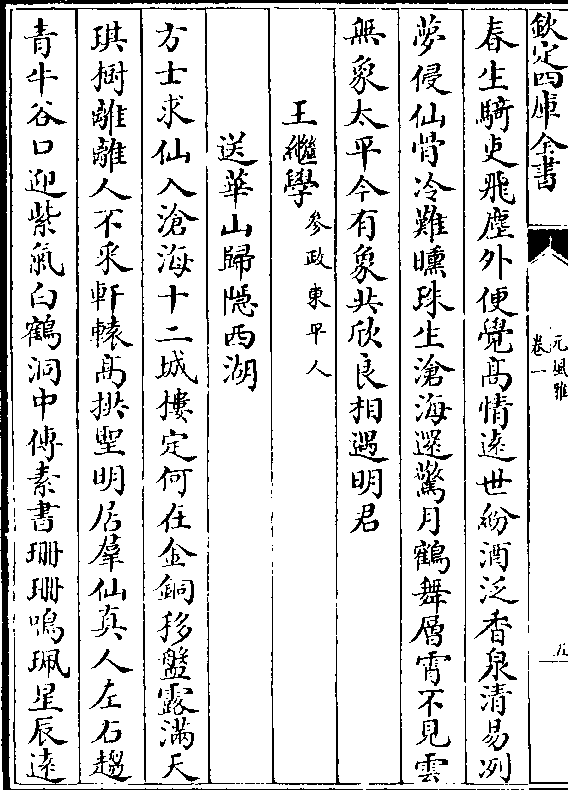 欽定四庫全書
元風雅
卷一
五
春生騎吏飛塵外便覺髙情逺世紛酒泛香泉清易冽
夢侵仙骨冷難曛珠生滄海還驚月鶴舞層霄不見雲
無象太平今有象共欣良相遇明君
王繼學參政東平人
送華山歸隠西湖
方士求仙入滄海十二城樓定何在金銅移盤露滿天
琪樹離離人不采軒轅髙拱聖明居羣仙真人左右趨
青牛谷口迎紫氣白鶴洞中傳素書珊珊鳴珮星辰逺